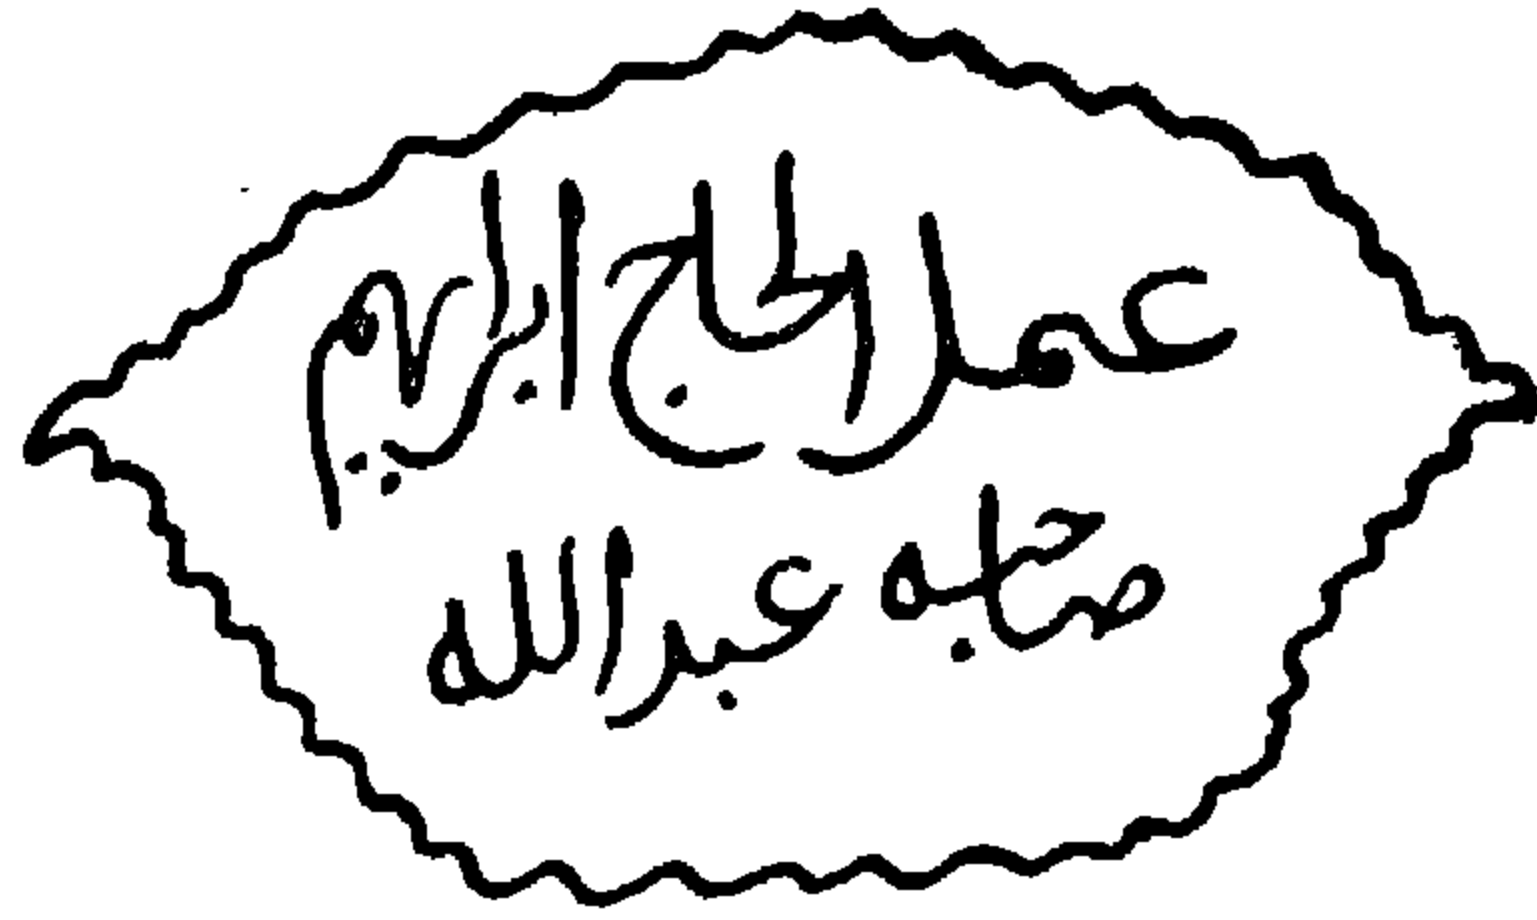 عمل الحاج ابرهيم
صاحبه عبد الله